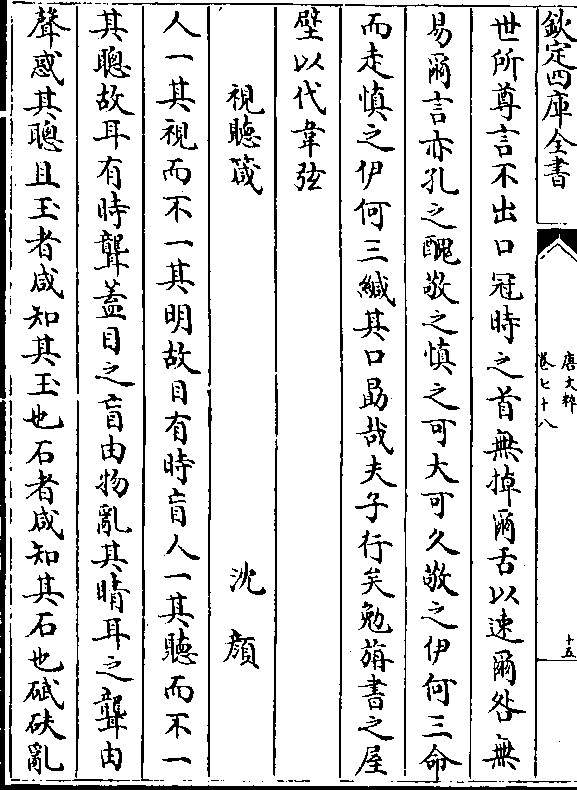 欽定四庫全書
唐文粹
卷七十八
十五
世所尊言不出口冠時之首無掉爾舌以速爾咎無
易爾言亦孔之醜敬之慎之可大可久敬之伊何三命
而走慎之伊何三緘其口勗哉夫子行矣勉旃書之屋
壁以代韋弦
視聽箴
沈顔
人一其視而不一其明故目有時盲人一其聽而不一
其聰故耳有時聾蓋目之盲由物亂其睛耳之聾由
聲惑其聰且玉者咸知其玉也石者咸知其石也碔砆亂